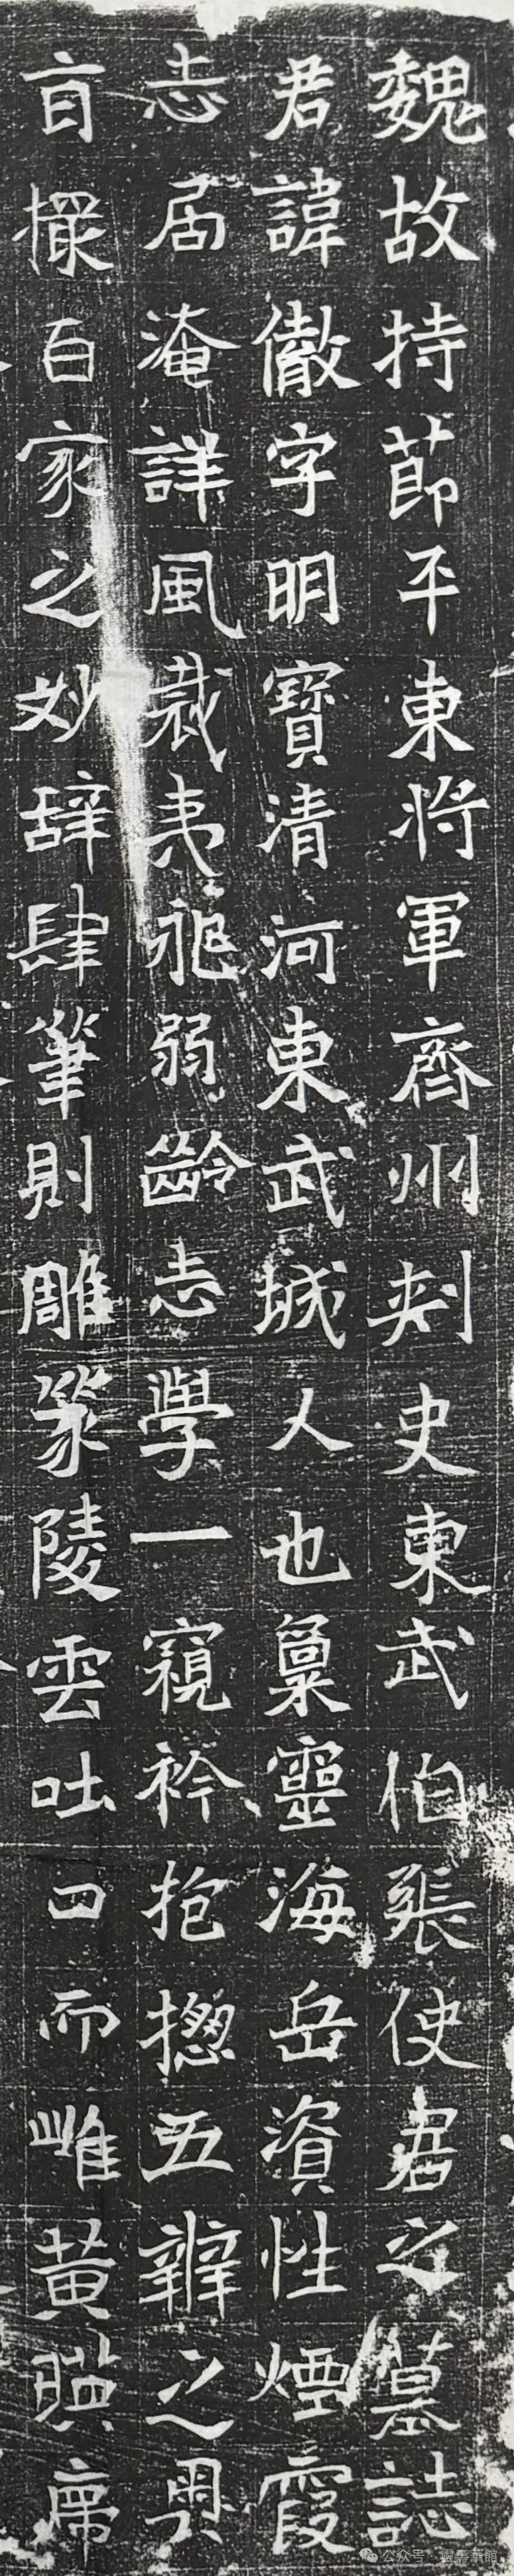 魏故持節平東將軍齊州刺史東武伯張使君之墓誌
君諱儆字明寶清河東武城人也稟靈海岳資性煙霞
志局淹詳風裁夷邈弱齡志學一窺衿抱摠五辨之奧
旨擢百家之妙辞肆筆則雕篆陵雲吐口而雌黃臨席
公众号